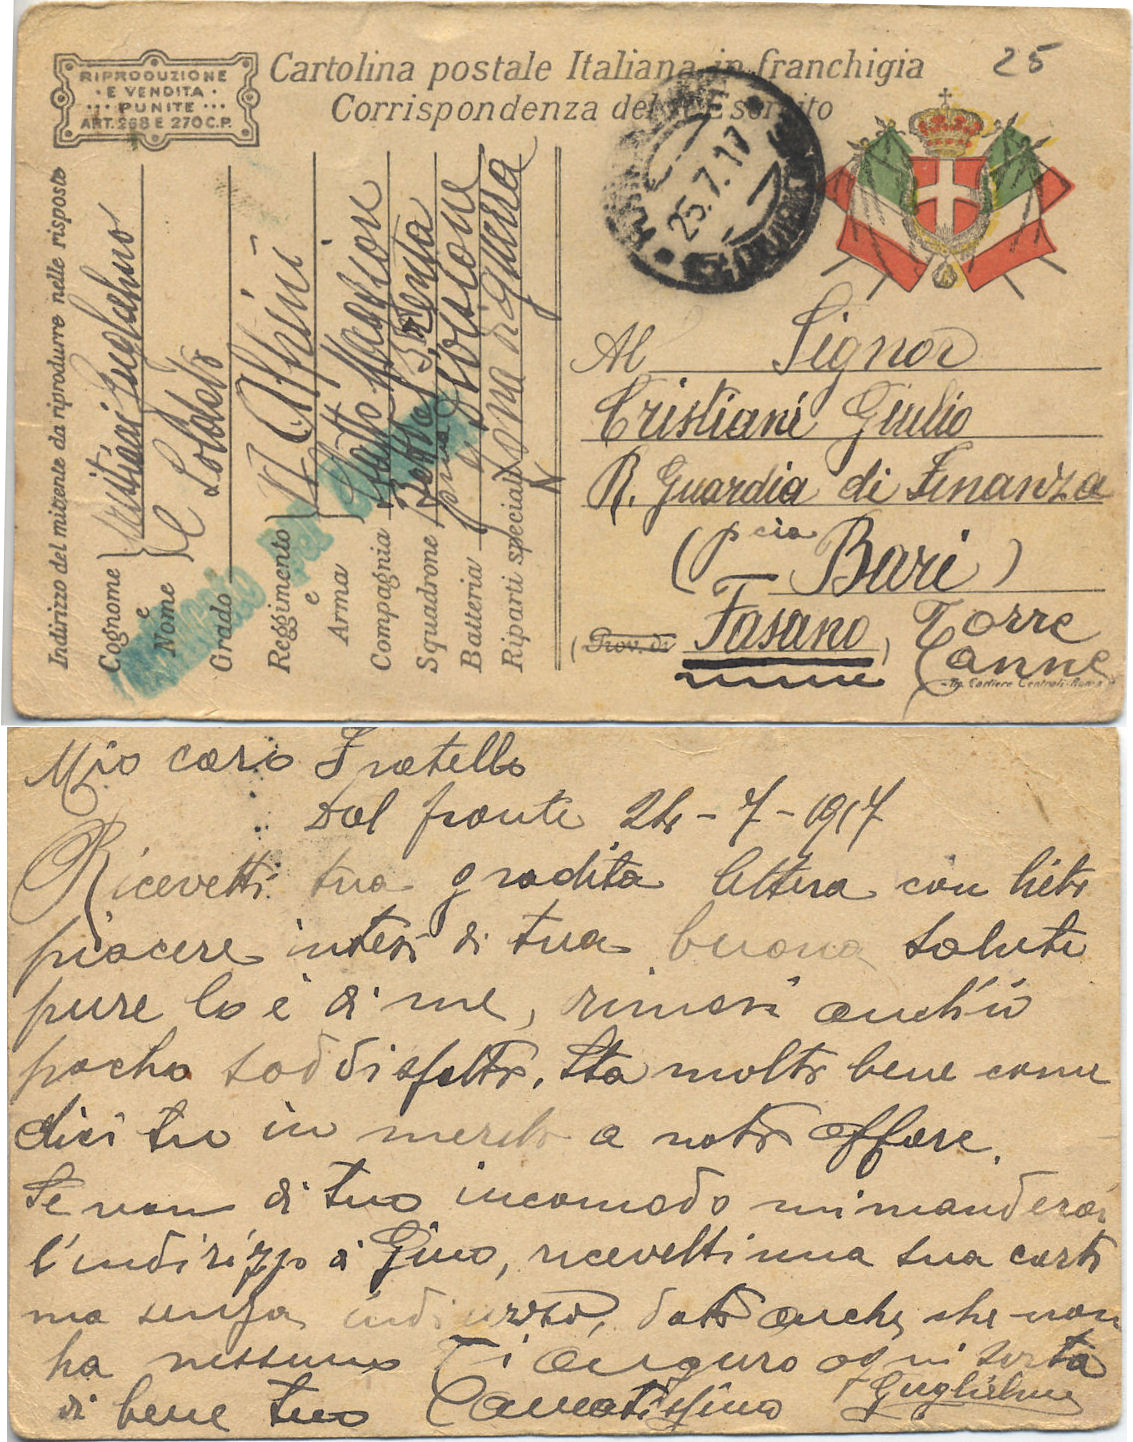 RIPRODUZIONE
E VENDITA
PUNITE
ART. 268 E 270 C.P.
Cartolina postale Italiana in franchigia
Corrispondenza del R. Esercito
25
25.7.17
Indirizzo del mittente da riprodurre nelle risposte
Cognome e Nome Cristiani Guglielmo
Grado Soldato
Reggimento e Arma Alpini
Compagnia
Squadrone
Batteria Divisione
Riparti speciali zona di guerra
Al Signor
Cristiani Giulio
R. Guardia di Finanza
(pcia Bari)
(Prov. di Fasano) Torre
Canne
Mio caro Fratello
Dal fronte 24-7-1917
Ricevetti tua gradita lettera con lieto
piacere intesi di tua buona salute
pure lo è di me, rimasi anch'io
pocho soddisfatto. Sta molto bene come
dici tu in merito a noto affare.
Se non di tuo incomodo mi manderai
l'indirizzo di Gino, ricevetti una sua carto
ma senza indirizzo, dato anche che non
ha nessuno Ti auguro ogni sorta
di bene tuo Guglielmo